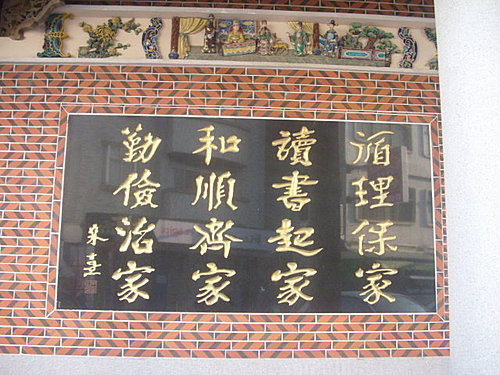 循理保家
讀書起家
和順齊家
勤儉治家
朱熹